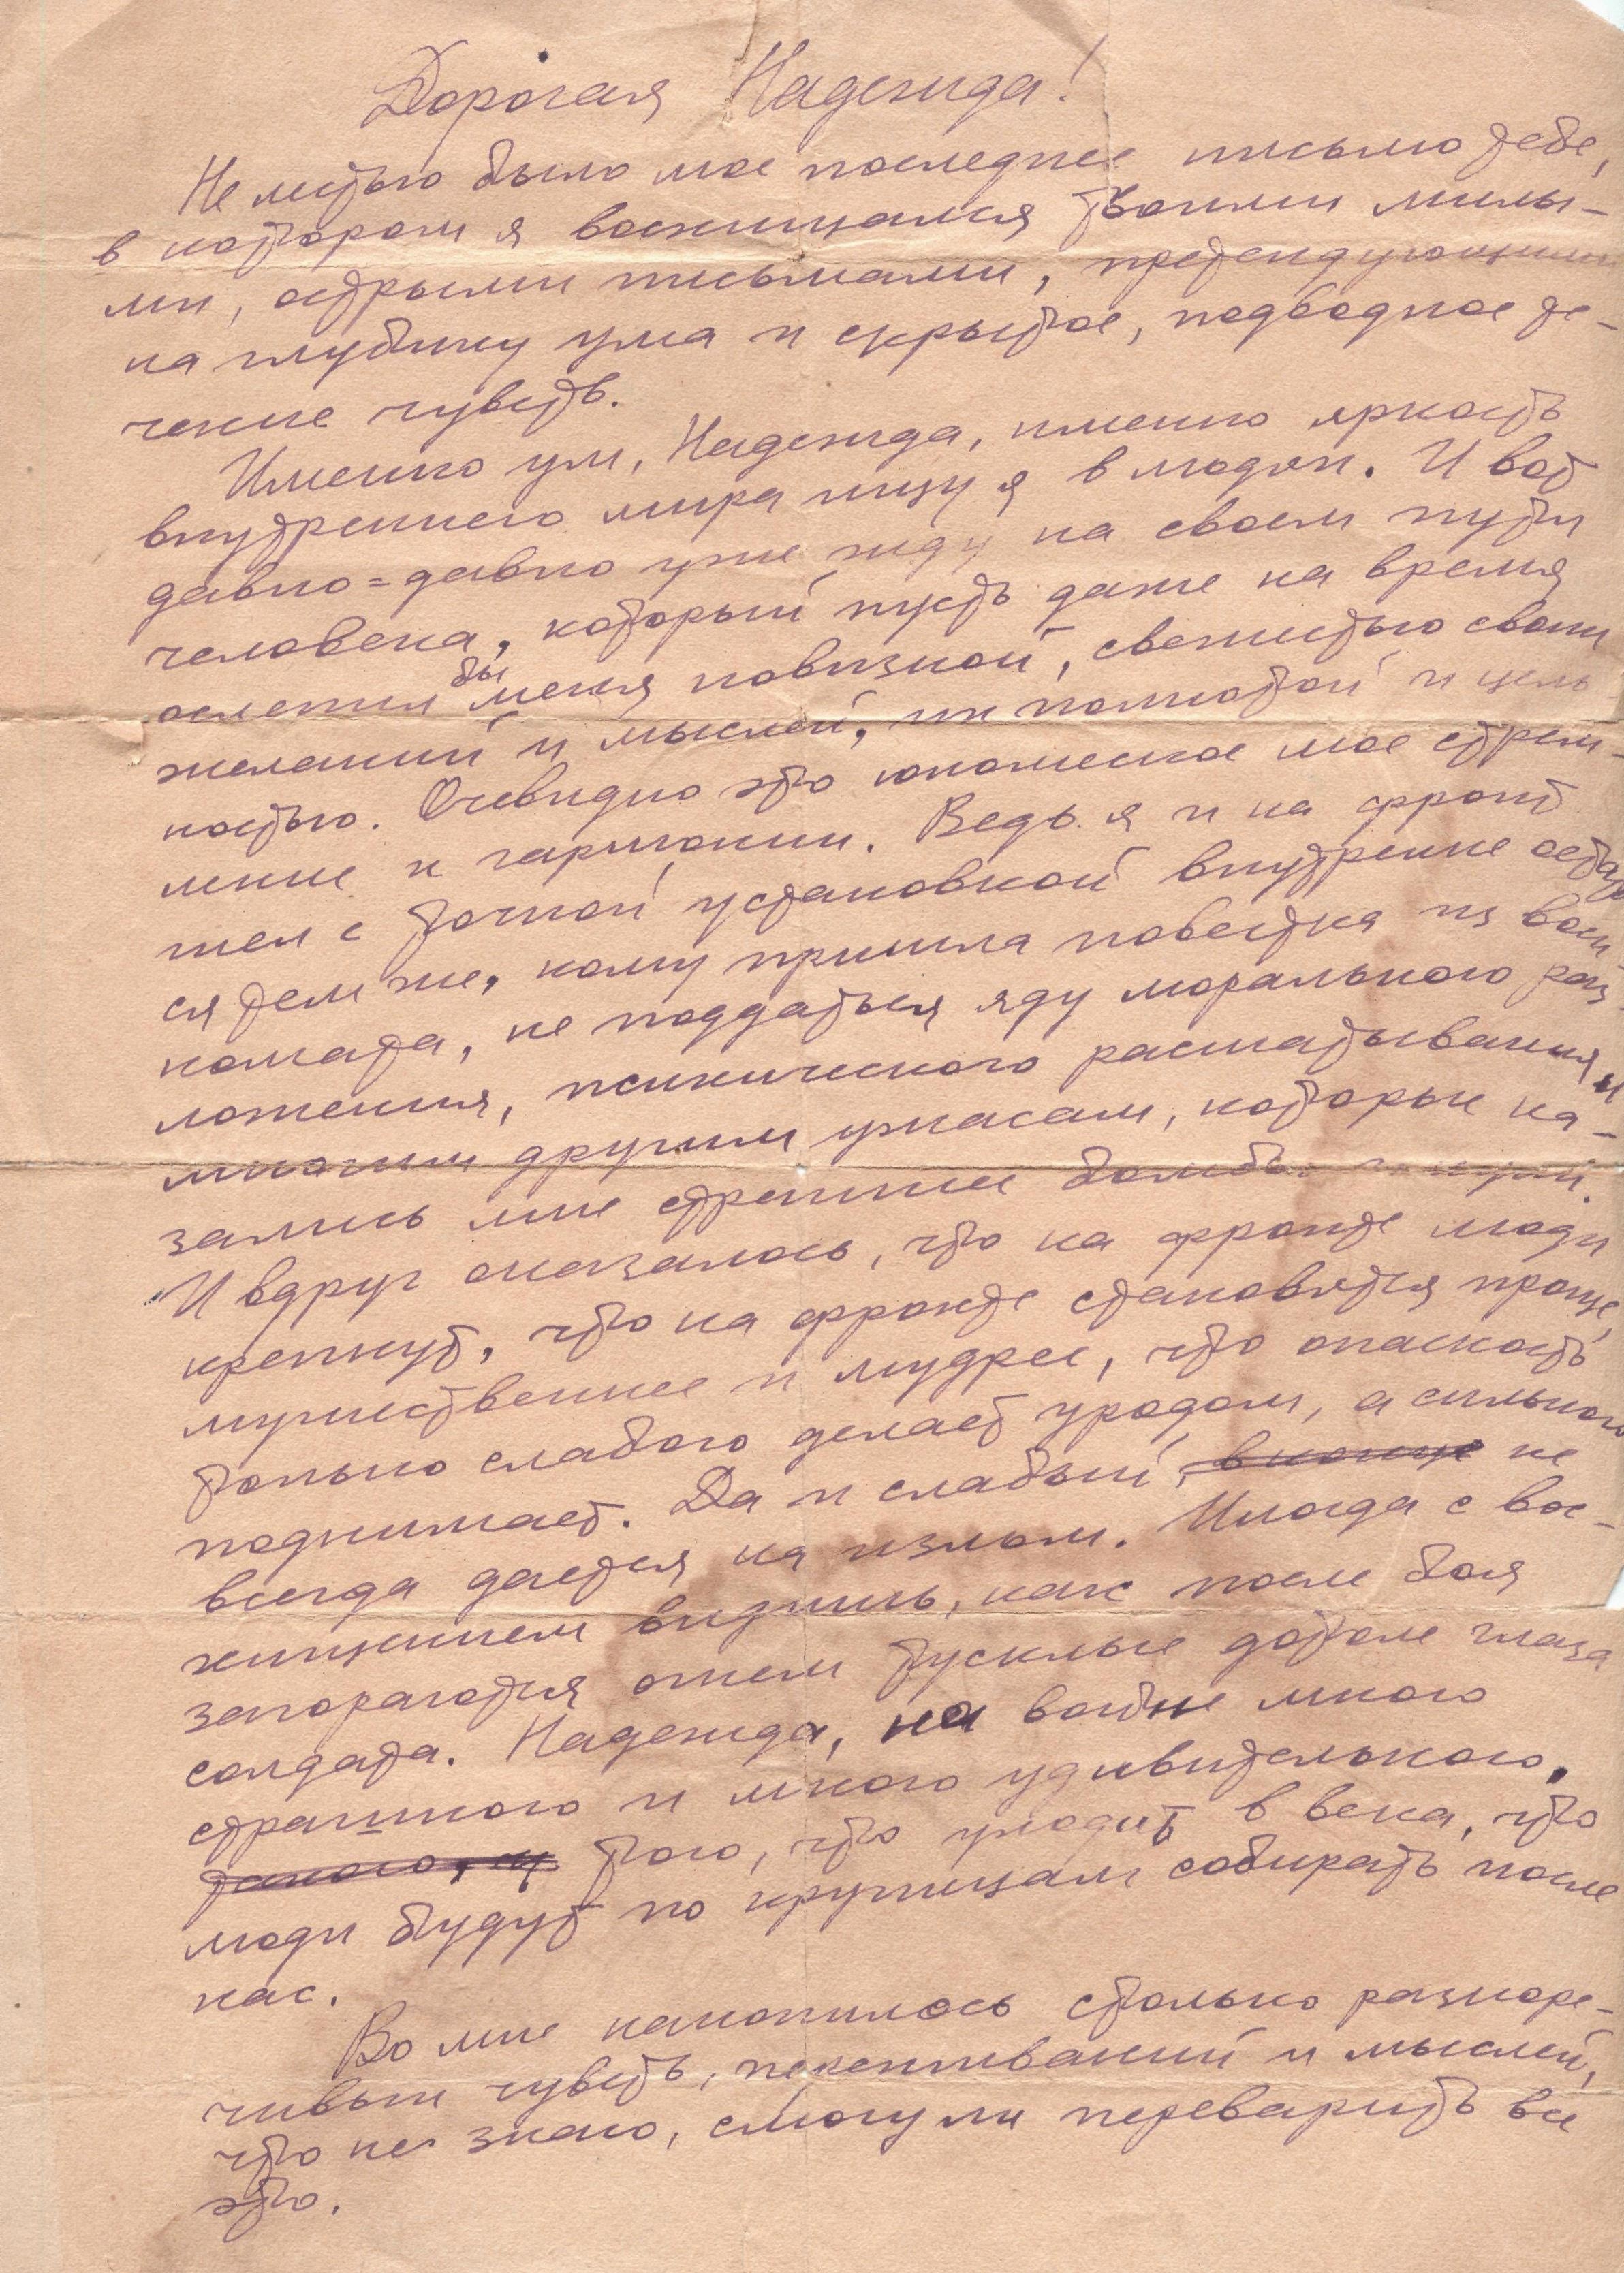 Дорогая Надежда!
Не лестью было мое последнее письмо тебе,
в котором я восхищался твоими милы-
ми, острыми письмами, претендующими
на глубину ума и скрытое, подводное те-
чение чувств.
Именно ум, Надежда, именно яркость
внутреннего мира ищу я в людях. И вот
давно=давно уже жду на своем пути
человека, который пусть даже на время
ослепил бы меня новизной, свежестью своих
желаний и мыслей, их полнотой и цель
ностью. Очевидно это юношеское мое стрем-
ление к гармонии. Ведь я и на фронт
шел с точной установкой внутренне остать
ся тем же, кому пришла повестка из воен-
комата, не поддаться яду морального раз-
ложения, психического расшатывания и
многим другим ужасам, которые ка-
зались мне страшнее бомбы
И вдруг оказалось, что на фронте люди
крепнут, что на фронте становятся проще,
мужественнее и мудрее, что опасность
только слабого делает уродом, а сильного
поднимает. Да и слабый, в конце не
всегда дается на излом. Иногда с вос-
хищением видишь, как после боя
загораются огнем тусклые дотоле глаза
солдата. Надежда, на войне много
страшного и много удивительного,
того, что уходит в века, что
люди будут по крупицам собирать после
нас.
Во мне накопилось столько разноре-
чивых чувств, переживаний и мыслей,
что не знаю, смогу ли переварить все
это.